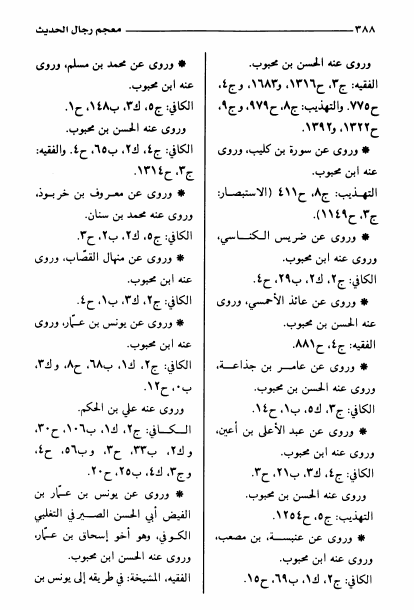 ٣٨٨ معجم رجال الحديث
وروى عنه الحسن بن محبوب.
الفقيه: ج٣، ح١٣١٦، و١٦٨٣، وج٤،
ح٧٧٥. والتهذيب: ج٨، ح٩٧٩، وج٩،
ح١٣٢٢، و١٣٩٢.
* وروى عن سورة بن كليب، وروى
عنه ابن محبوب.
التهذيب: ج٨، ح٤١١ (الاستبصار:
ج٣، ح١١٤٩).
* وروى عن ضريس الكناسي،
وروى عنه ابن محبوب.
الكافي: ج٢، ك٢، ب٢٩، ح٤.
* وروى عن عائذ الأحمسي، وروى
عنه الحسن بن محبوب.
الفقيه: ج٤، ح٨٨١.
* وروى عن عامر بن جذاعة،
وروى عنه الحسن بن محبوب.
الكافي: ج٣، ك٥، ب١، ح١٤.
* وروى عن عبد الأعلى بن أعين،
وروى عنه ابن محبوب.
الكافي: ج٤، ك٣، ب٢١، ح٣.
وروى عنه الحسن بن محبوب.
التهذيب: ج٥، ح١٢٥٤.
* وروى عن عنبسة، بن مصعب،
وروى عنه ابن محبوب.
الكافي: ج٢، ك١، ب٦٩، ح١٥.
* وروى عن محمد بن مسلم، وروى
عنه ابن محبوب.
الكافي: ج٥، ك٣، ب١٤٨، ح١.
وروى عنه الحسن بن محبوب.
الكافي: ج٤، ك٢، ب٦٥، ح٤. والفقيه:
ج٣، ح١٣١٤.
* وروى عن معروف بن خربوذ،
وروى عنه محمد بن سنان.
الكافي: ج٥، ك٢، ب٢، ح٣.
* وروى عن منهال القصّاب، وروى
عنه ابن محبوب.
الكافي: ج٢، ك٣، ب١، ح٤.
* وروى عن يونس بن عمّار، وروى
عنه ابن محبوب.
الكافي: ج٢، ك١، ب٦٨، ح٨، وك٣،
ب٠، ح١٢.
وروى عنه علي بن الحكم.
الكافي: ج٢، ك١، ب١٠٦، ح٣٠،
وك٢، ب٣٣، ح٣، وب٥٦، ح٤،
وج٣، ك٤، ب٢٥، ح٢٠.
* وروى عن يونس بن عمّار بن
الفيض أبي الحسن الصيرفي التغلبي
الكوفي، وهو أخو إسحاق بن عمّار،
وروى عنه الحسن ابن محبوب.
الفقيه، المشيخة: في طريقه إلى يونس بن